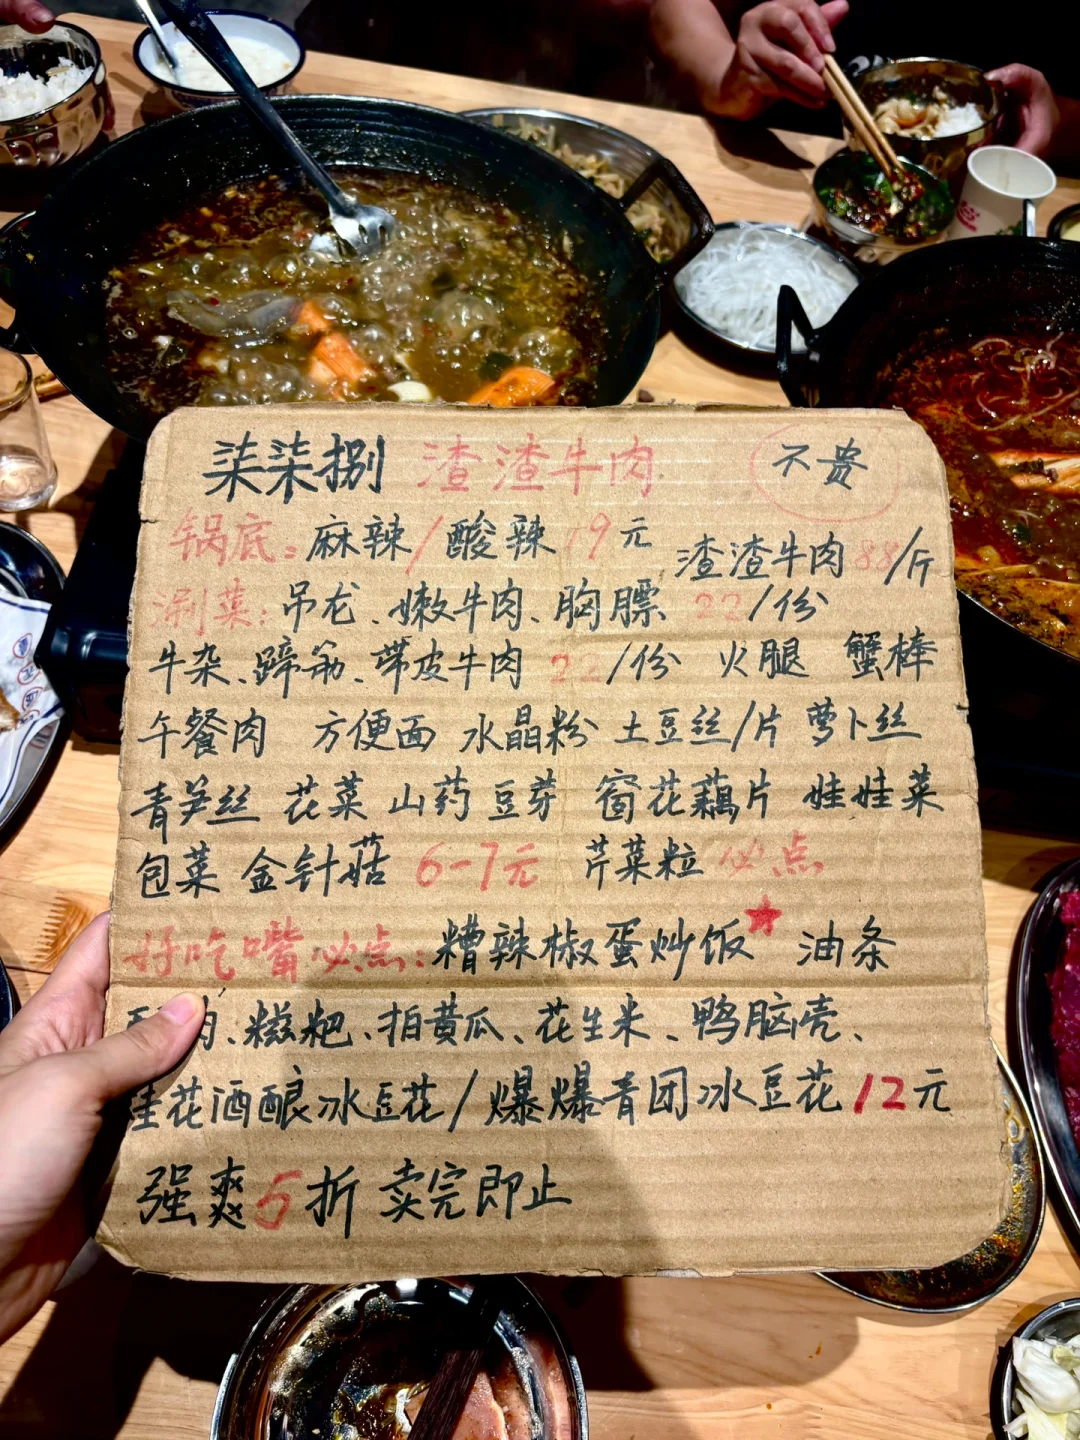 柒柒捌 渣渣牛肉 不贵
锅底：麻辣/酸辣 19元 渣渣牛肉88/斤
涮菜：吊龙、嫩牛肉、胸膘 22/份
牛杂、蹄筋、带皮牛肉 22/份 火腿 蟹棒
午餐肉 方便面 水晶粉 土豆丝/片 萝卜丝
青笋丝 花菜 山药 豆芽 窗花藕片 娃娃菜
包菜 金针菇 6-7元 芹菜粒 必点
好吃嘴必点：糟辣椒蛋炒饭★ 油条
肉、糍粑、拍黄瓜、花生米、鸭脑壳、
桂花酒酿冰豆花/爆爆青团冰豆花12元
强爽5折 卖完即止